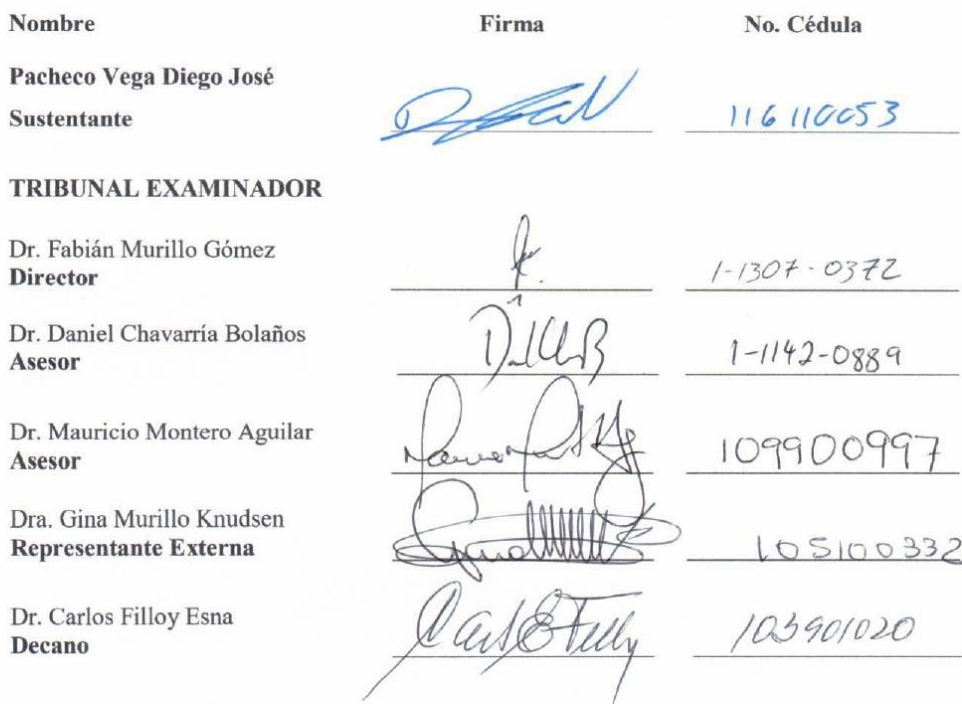 Nombre Firma No. Cédula
Pacheco Vega Diego José
Sustentante 116110053
TRIBUNAL EXAMINADOR
Dr. Fabián Murillo Gómez
Director 1-1307-0372
Dr. Daniel Chavarría Bolaños
Asesor 1-1142-0889
Dr. Mauricio Montero Aguilar
Asesor 109900997
Dra. Gina Murillo Knudsen
Representante Externa 105100332
Dr. Carlos Filloy Esna
Decano 103901020